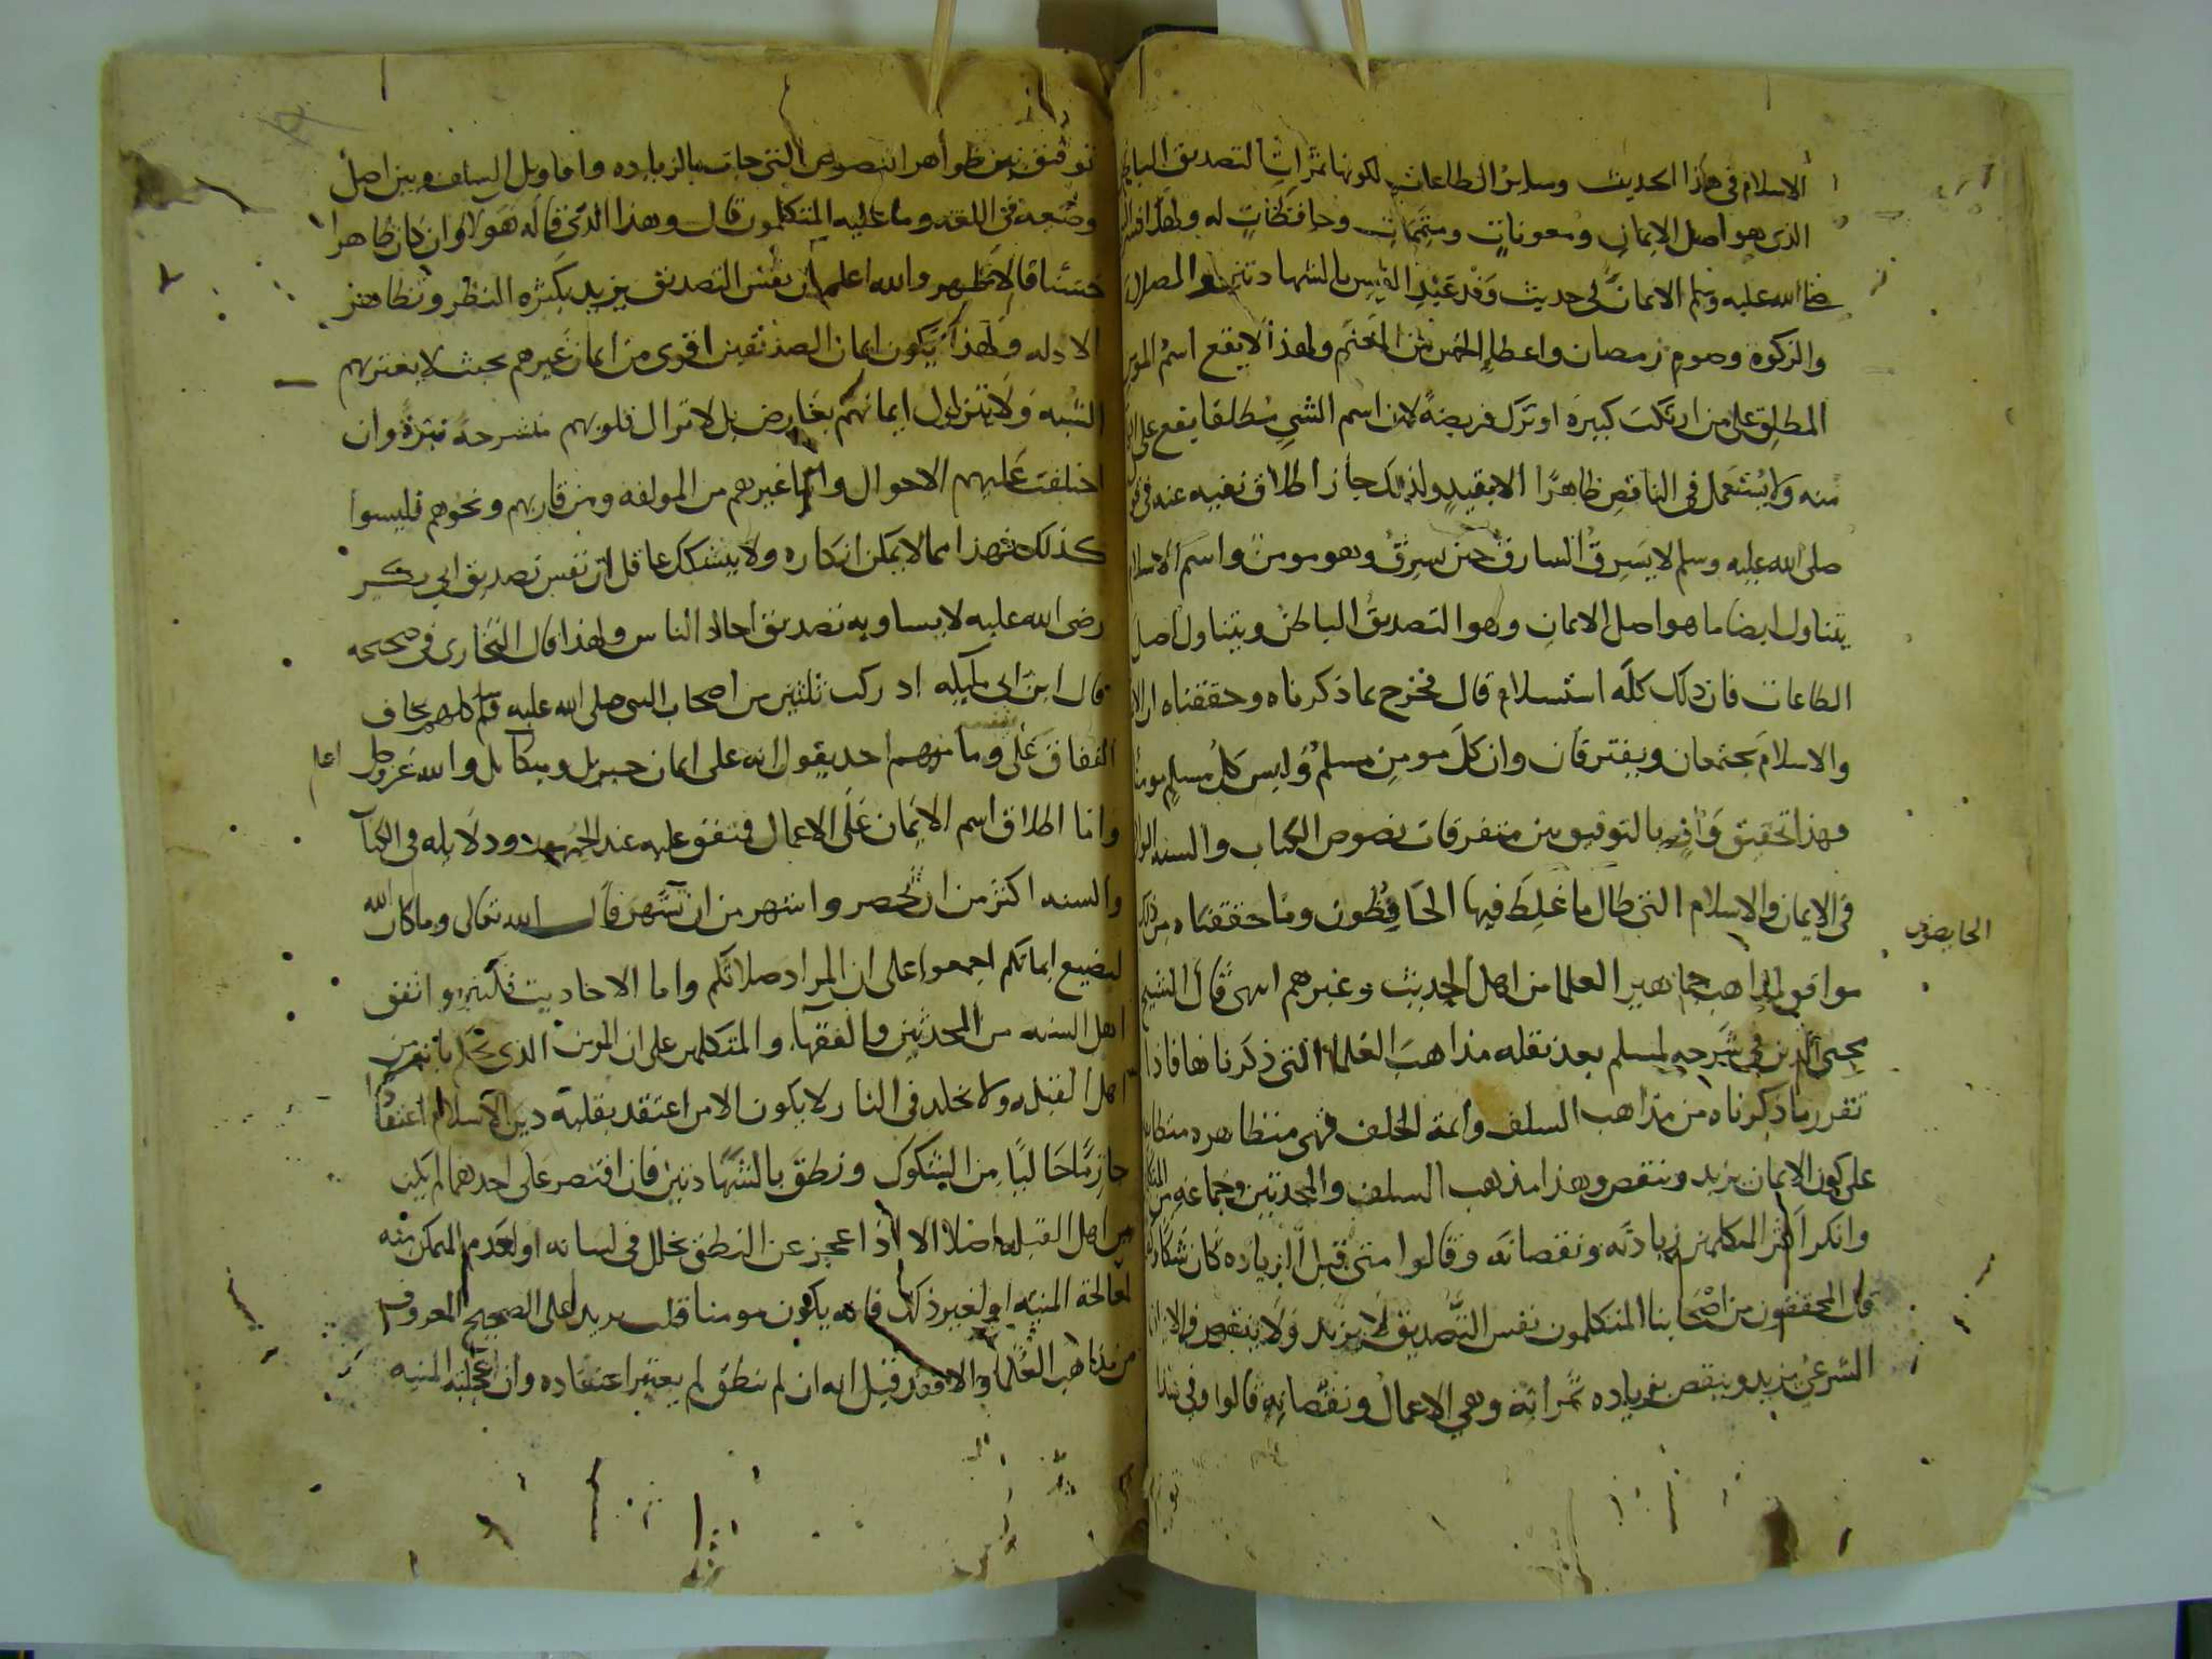 الاسلام فى هذا الحديث وساير الطاعات لكونها ثمرات التصديق الباطن
الذى هو اصل الايمان ومعونات ومتممات وحافظات له ولهذا فسر
صلى الله عليه وسلم الايمان فى حديث وفد عبد القيس بالشهادتين والصلاة
والزكوة وصوم رمضان واعطا الخمس من المغنم ولهذا لا يقع اسم المومن
المطلق على من ارتكب كبيرة او ترك فريضة لان اسم الشى مطلقا يقع على
منه ولا يستعمل فى الناقص ظاهرا الا بقيد ولذلك جاز اطلاق نفيه عنه فى
صلى الله عليه وسلم لا يسرق السارق حين يسرق وهو مومن واسم الاسلام
يتناول ايضا ما هو اصل الايمان وهو التصديق الباطن ويتناول اصل
الطاعات فان ذلك كله استسلام قال فخرج بما ذكرناه وحققناه ان
والاسلام يجتمعان ويفترقان وان كل مومن مسلم وليس كل مسلم مومنا
فهذا تحقيق وافر بالتوفيق بين متفرقات نصوص الكتاب والسنه
فى الايمان والاسلام التى طال ما غلط فيها الحافظون وما حققناه من ذلك
الخايضون
موافق لمذاهب جماهير العلما من اهل الحديث وغيرهم انتهى قال الشيخ
محيى الدين فى شرحه لمسلم بعد نقله مذاهب العلما التى ذكرناها فاذا
تقرر ما ذكرناه من مذاهب السلف وائمة الخلف فهى متظاهره
على كون الايمان يزيد وينقص وهذا مذهب السلف والمحدثين وجماعه من
وانكر اكثر المتكلمين زيادته ونقصانه وقالوا متى قبل الزياده كان شكا
قال المحققون من اصحابنا المتكلمون نفس التصديق لا يزيد ولا ينقص والايمان
الشرعى يزيد وينقص بزياده ثمراته وهى الاعمال ونقصانه قالوا وفى هذا
توفيق بين ظواهر النصوص التى جات بالزياده واقاويل السلف وبين اصل
وضعه فى اللغه وما عليه المتكلمون قال وهذا الذى قاله هولا وان كان ظاهرا
حسنا فالاظهر والله اعلم ان نفس التصديق يزيد بكثره النظر وتظاهر
الادله ولهذا يكون ايمان الصديقين اقوى من ايمان غيرهم بحيث لا يعتريهم
الشبه ولا يتزلزل ايمانهم بعارض بل لا تزال قلوبهم منشرحة نيرة وان
اختلفت عليهم الاحوال واما غيرهم من المولفه ومن قاربهم ونحوهم فليسوا
كذلك فهذا مما لا يمكن انكاره ولا يتشكك عاقل ان نفس تصديق ابى بكر
رضى الله عليه لا يساويه تصديق احاد الناس ولهذا قال البخارى فى صحيحه
قال ابن ابى مليكه ادركت ثلثين من اصحاب النبى صلى الله عليه وسلم كلهم يخاف
النفاق على وما منهم احد يقول انه على ايمان جبريل وميكائل والله عز وجل
اعلم
واما اطلاق اسم الايمان على الاعمال فمتفق عليه عند ودلايله فى الكتا
والسنه اكثر من ان تحصر واشهر من ان تشهر قال الله تعالى وما كان الله
ليضيع ايمانكم اجمعوا على ان المراد صلاتكم واما الاحاديث فكثيره واتفق
اهل السنه من المحدثين والفقها والمتكلمين على ان المومن الذى يحكم بانه من
اهل القبله ولا يخلد فى النار لا يكون الا من اعتقد بقلبه دين الاسلام اعتقادا
جازما خاليا من الشكوك ونطق بالشهادتين فان اقتصر على احدهما لم يكن
من اهل القبله اصلا الا اذا عجز عن النطق لخلل فى لسانه او لعدم التمكن منه
لمعالجة المنيه او لغير ذلك فانه يكون مومنا قلت يريد على الصحيح المعروف
من مذاهب العلما والا فقد قيل انه ان لم ينطق لم يعتبر اعتقاده وان اعجلته المنيه